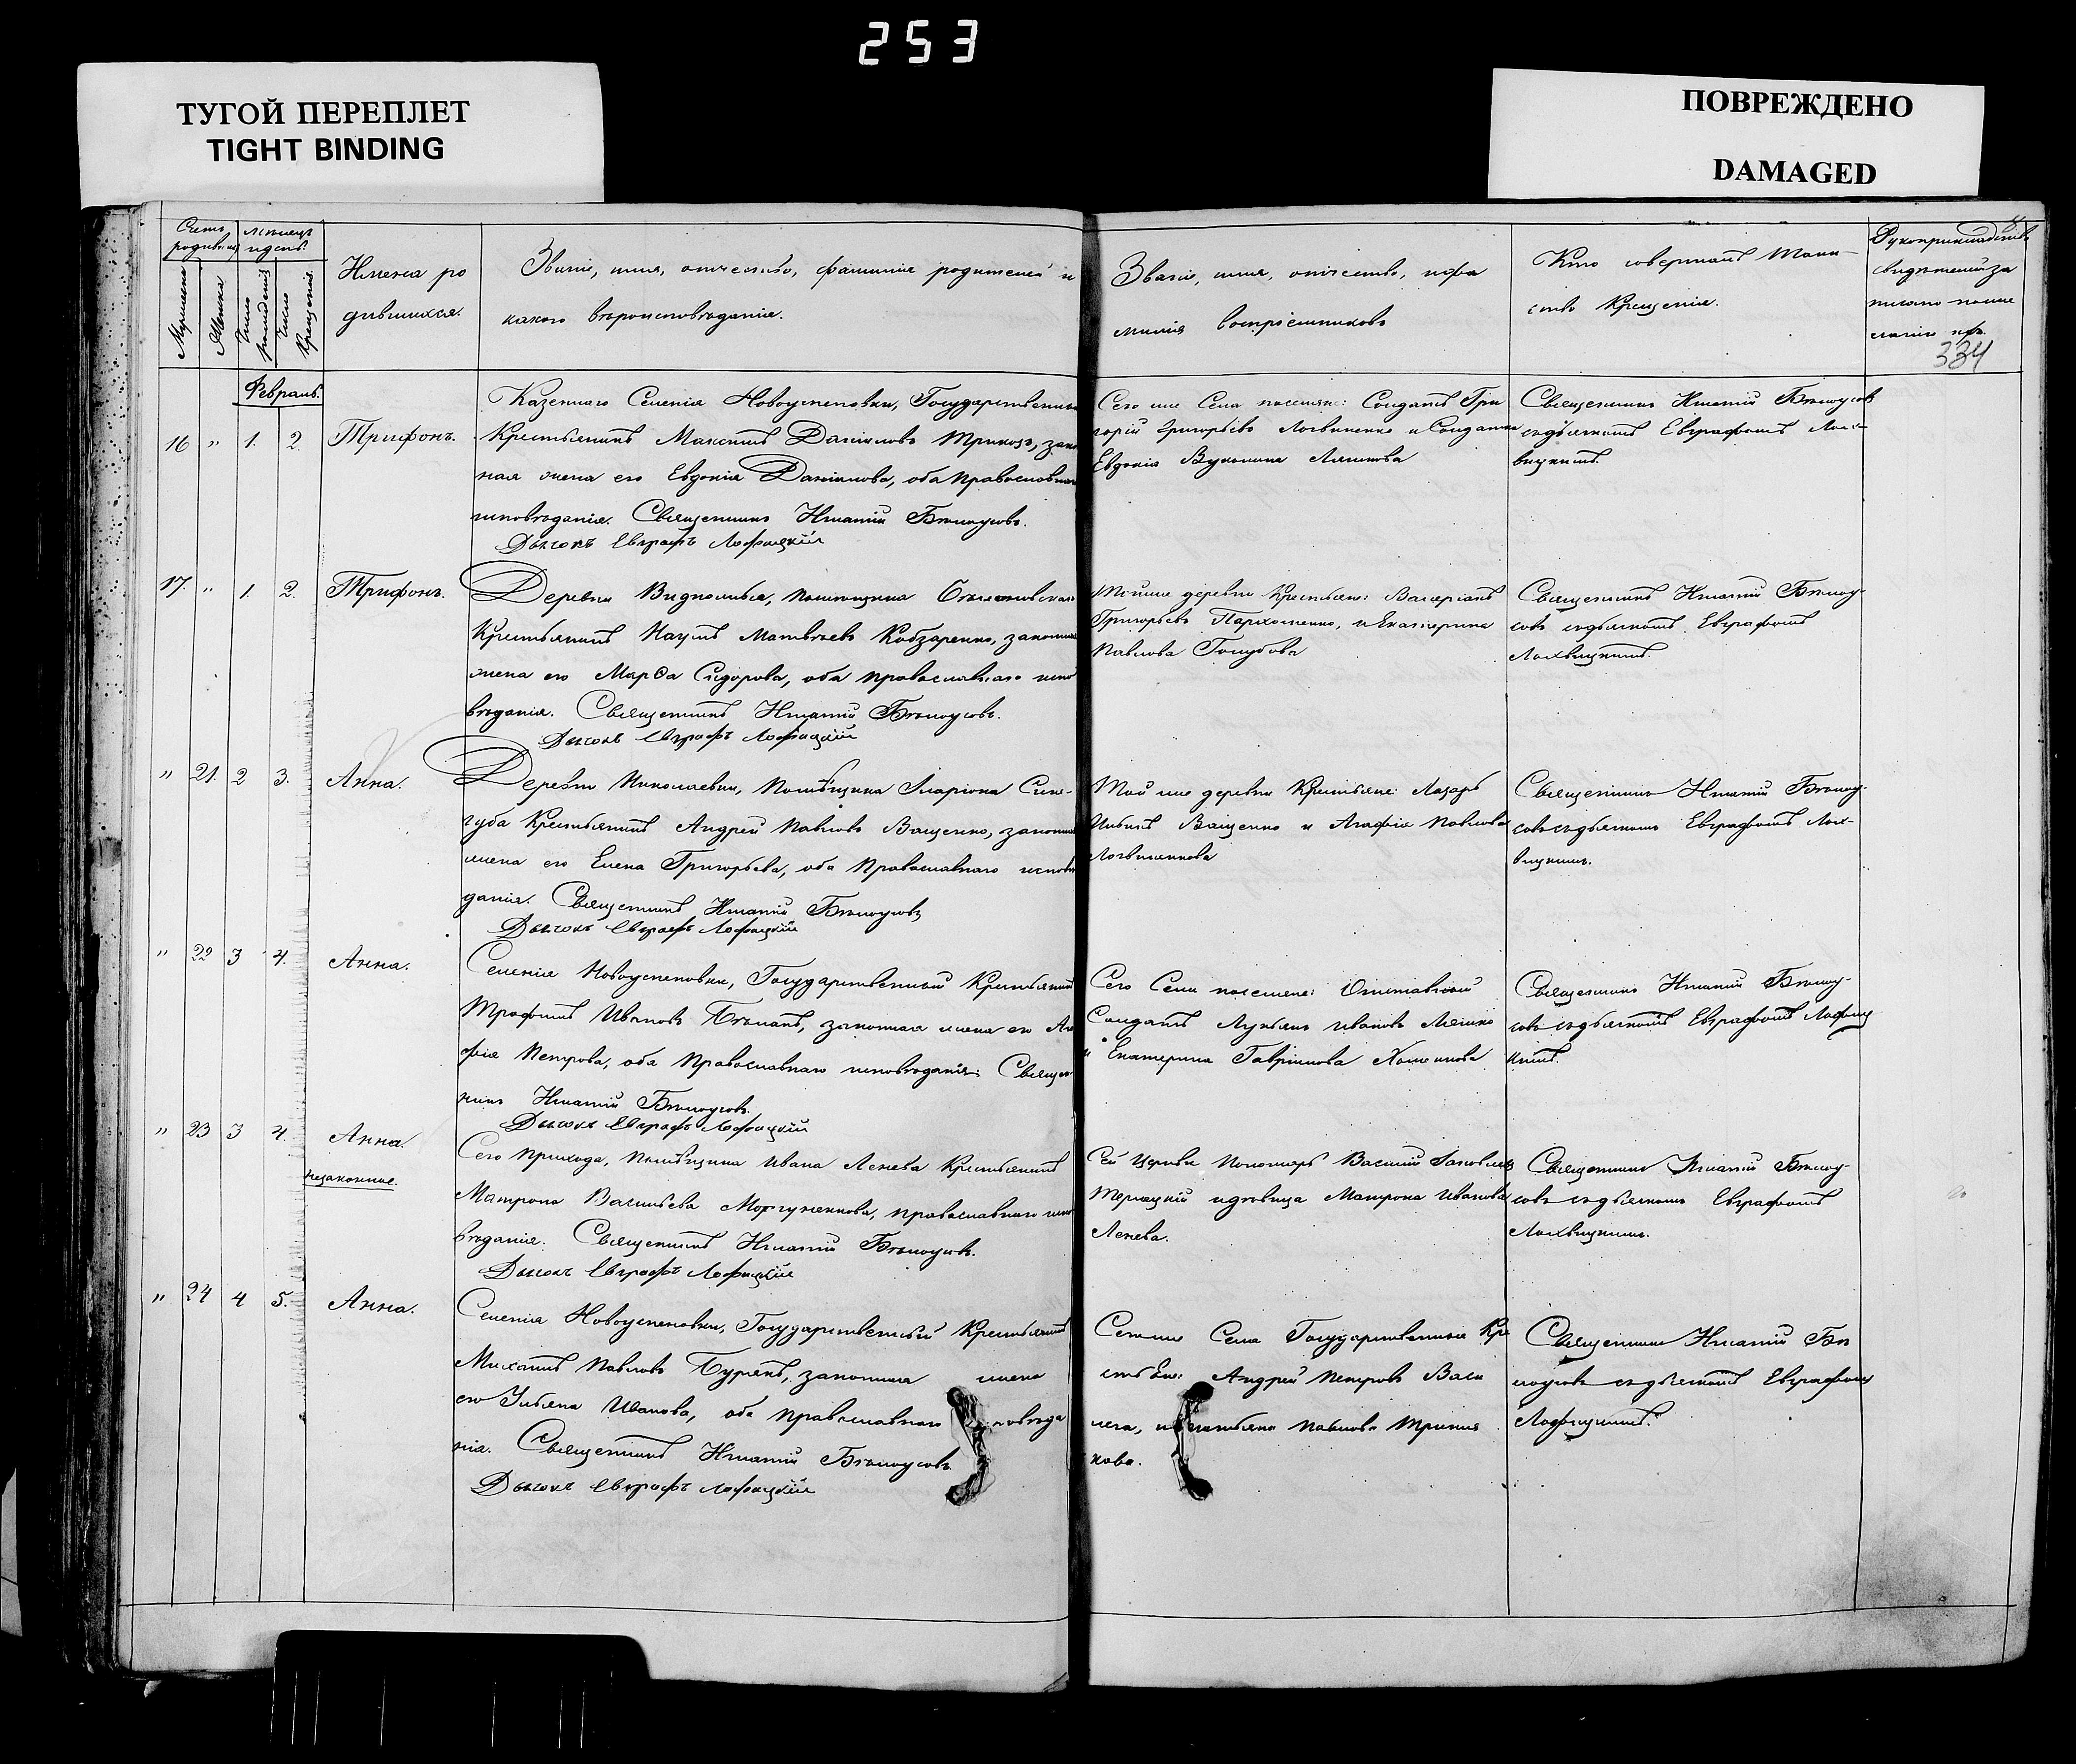 253
ТУГОЙ ПЕРЕПЛЕТ
TIGHT BINDING
ПОВРЕЖДЕНО
DAMAGED
Счетъ родившихся
Мѣсяцъ и день.
Мужеска
Женска
Число рожденія
Число Крещенія.
Имена ро
дившихся.
Званіе, имя, отчество, фамилія родителей и
какого вѣроисповѣданія.
Званіе, имя, отчество, и фа
милія воспріемниковъ
Кто совершалъ Таин-
ство Крещенія.
Рукоприкладство
свидѣтелей за
писи по же
ланію
334
Февраль.
16 " 1. 2. Трифонъ.
Казеннаго Селенія Новоуспеновки, Государственный
Крестьянинъ Максимъ Даніиловъ закон
ная жена его Евдокія Даніилова, оба православнаго
исповѣданія. Священникъ Игнатій Бѣлоусовъ.
Дьячокъ Евграфъ Лофицкій
Сего же Села поселяне: Солдатъ Гри
горій Григорьевъ Логвиненко и Солдатка
Евдокія
Священникъ Игнатій Бѣлоусовъ
съ дьячкомъ Евграфомъ Лох-
вицкимъ.
17. " 1. 2. Трифонъ.
Деревни Помѣщика
Крестьянинъ Наумъ Матвѣевъ Кобзаренко, законная
жена его Марѳа Сидорова, оба православнаго испо
вѣданія. Священникъ Игнатій Бѣлоусовъ.
Дьячокъ Евграфъ Лофицкій
Той же деревни Крестьяне: Валеріанъ
Григорьевъ Пархоменко, и Екатерина
Павлова Голубова
Священникъ Игнатій Бѣлоу-
совъ съ дьячкомъ Евграфомъ
Лохвицкимъ.
" 21. 2 3. Анна.
Деревни Николаевки, Помѣщика Иларіона Сине-
губа Крестьянинъ Андрей Павловъ Ващенко, законная
жена его Елена Григорьева, оба Православнаго исповѣ
данія. Священникъ Игнатій Бѣлоусовъ
Дьячокъ Евграфъ Лофицкій
Той же деревни Крестьяне: Лазарь
Ващенко и Агафія Павлова
Логвиненкова
Священникъ Игнатій Бѣлоу-
совъ съ дьячкомъ Евграфомъ Лох-
вицкимъ.
" 22 3 4. Анна.
Селенія Новоуспеновки, Государственный Крестьянинъ
Трофимъ Ивановъ законная жена его Ага
фія Петрова, оба Православнаго исповѣданія: Священ
никъ Игнатій Бѣлоусовъ.
Дьячокъ Евграфъ Лофицкій
Сего Села поселяне: Отставной
Солдатъ Лукьянъ Ивановъ Ляшко
и Екатерина Гавріилова
Священникъ Игнатій Бѣлоу-
совъ съ дьячкомъ Евграфомъ Лофиц
кимъ.
" 23 3 4. Анна.
незаконная.
Сего прихода, Помѣщика Ивана Ленева
Матрона Васильева Моргуненкова, православнаго испо
вѣданія. Священникъ Игнатій Бѣлоусовъ.
Дьячокъ Евграфъ Лофицкій
Сей Церкви Пономарь Василій Яковлевъ
и дѣвица Матрона Иванова
Ленева.
Священникъ Игнатій Бѣлоу-
совъ съ дьячкомъ Евграфомъ
Лохвицкимъ.
" 24 4 5. Анна.
Селенія Новоуспеновки, Государственный Крестьянинъ
Михаилъ Павловъ законная жена
его Ульяна Иванова, оба православнаго исповѣда
нія. Священникъ Игнатій Бѣлоусовъ.
Дьячокъ Евграфъ Лофицкій
Сего же Села Государственные Кре
стьяне: Андрей Петровъ
Павлова
кова.
Священникъ Игнатій Бѣ
лоусовъ съ дьячкомъ Евграфомъ
Лофицкимъ.